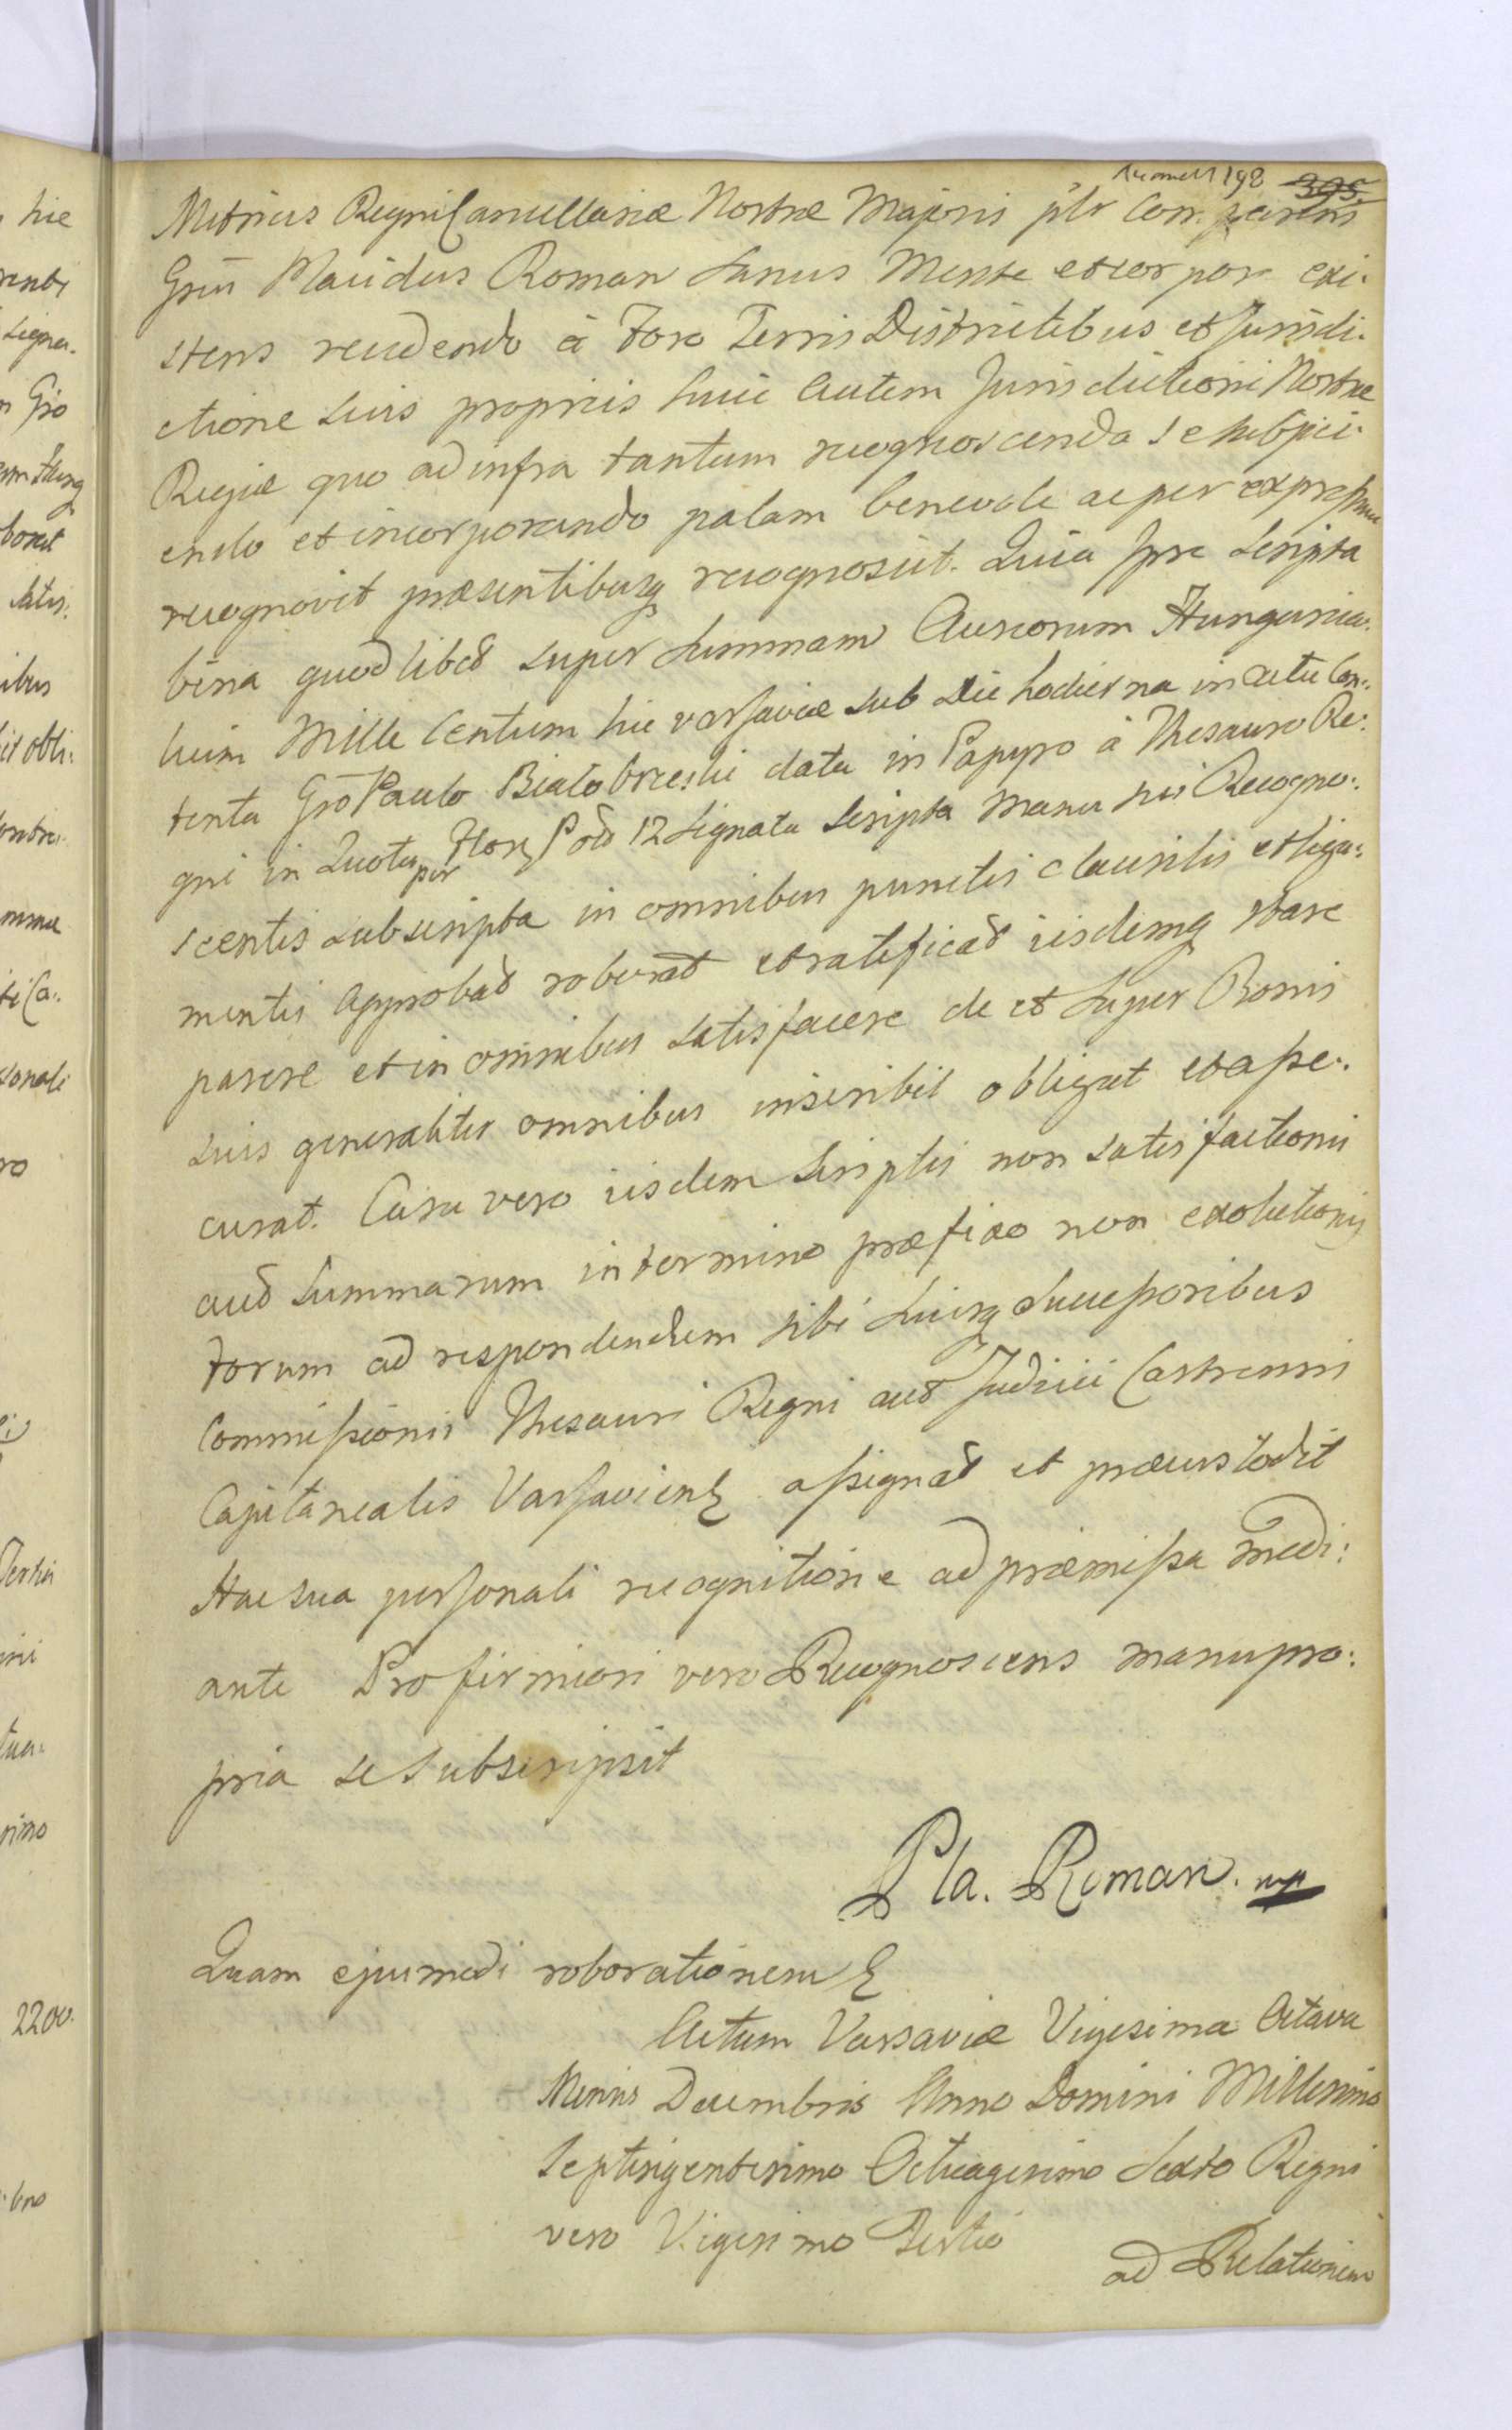 198 395.
Metrices Regni Cancellariæ Nostræ Majoris plr Comparens
Grsus Placidus Roman Sanus Mente et corpore exi:
stens recedendo à Foro Terris Districtibus et Jurisdi:
ctione suis propriis huic autem Jurisdictioni Nostræ
Regiæ quo ad infra tantum recognoscenda se subjici:
endo et incorporando palam benevole ac per expressum
recognovit præsentibusq recognoscit. Quia Ipse Scripta
bina quodlibet super Summam Aureorum Hungarica:
lium Mille Centum hic Varsaviæ sub Die hodierna in actu Con:
tenta Gro Paulo Białobrzeski data in Papyro à Thesauro Re:
gni in Quota per Flor Pol 12 Signata Scripta Manu sui Recogno:
scentis subscripta in omnibus punctis clausulis et liga:
mentis approbat roborat et ratificat iisdemq stare
parere et in omnibus satisfacere de et super Bonis
suis generaliter omnibus inscribit obligat et asse:
curat. Casu vero iisdem Scriptis non satisfactionis
aut Summarum in termino præfixo non exolutionis
Forum ad respondendum sibi suisq Successoribus
Commissionis Thesauri Regni aut Judicii Castrensis
Capitanealis Varsavien assignat et præcustodit
Hac sua personali recognitione ad præmissa medi:
ante Pro firmiori vero Recognoscens manu pro:
pria se subscripsit
Pla. Roman. mp
Quam ejusmodi roborationem
Actum Varsaviæ Vigesima Octava
Mensis Decembris Anno Domini Millesimo
Septingentesimo Octuagesimo Sexto Regni
vero Vigesimo Tertio
ad Relationem